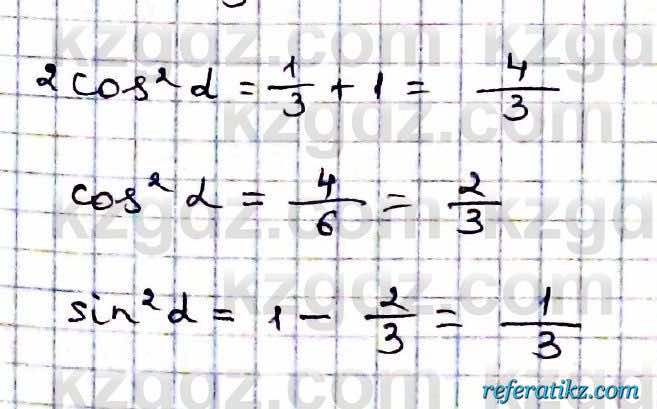 2cos²α = 1/3 + 1 = 4/3
cos²α = 4/6 = 2/3
sin²α = 1 - 2/3 = 1/3
kzgdz.com
referatikz.com